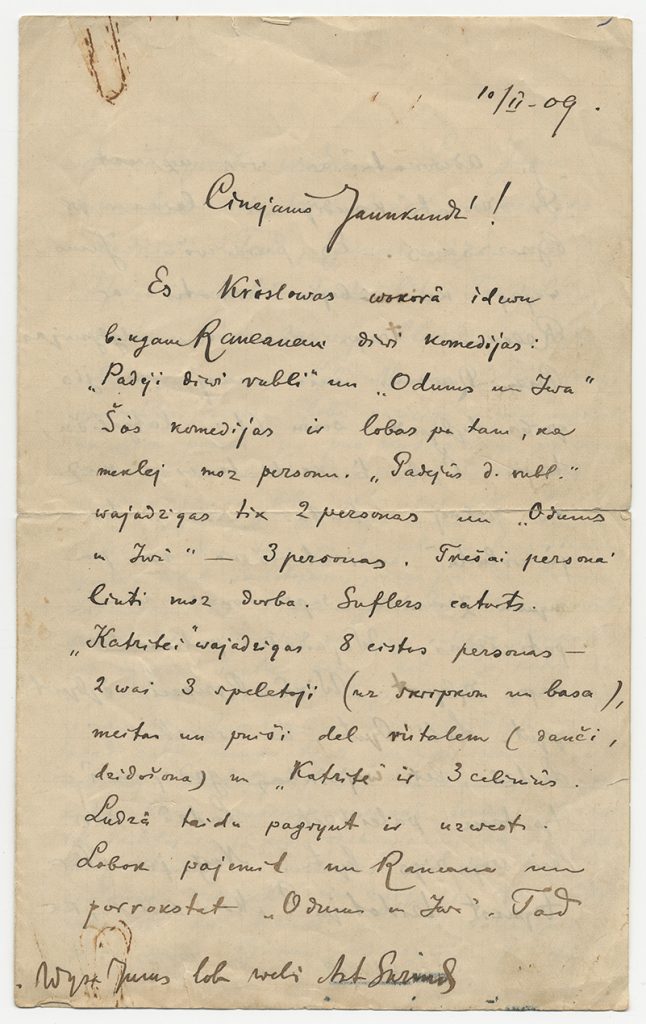 10/II - 09.
Cinejamō Jaunkundź!
Es Krōslowas wokorā idewu
b-kgam Rancanam diwi komedijas:
„Padeji diwi rubli" un „Odums un Jwa"
Šōs komedijas ir lobas pa tam, ka
meklej moz personu. „Padejūs d. rubl."
wajadzigas tik 2 personas un „Odums
u Jwa" — 3 personas. Trešai personai
liuti moz dorba. Suflers caturts.
„Katritei" wajadzigas 8 eistas personas —
2 wai 3 speletoji (uz skripkom un basa),
meitas un puiši del rūtalem (danči,
dzidōšona) un „Katrite" ir 3 celinūs.
Ludzā taidu pagrynt ir uzwest.
Lobok pajemit nu Rancana un
porrokstat „Odums u Jwa". Tad
Wysu Jums loba weli